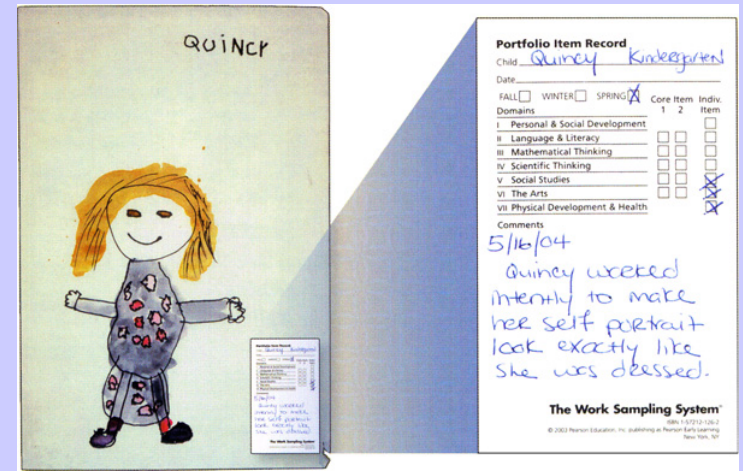 QUiNCY
Portfolio Item Record
Child Quincy Kindergarten
Date
FALL WINTER SPRING X
Core Item Indiv.
Domains 1 2 Item
I Personal & Social Development
II Language & Literacy
III Mathematical Thinking
IV Scientific Thinking
V Social Studies
VI The Arts
VII Physical Development & Health
Comments
5/16/04
Quincy worked
intently to make
her self portrait
look exactly like
she was dressed.
The Work Sampling System™
ISBN 1-57212-126-2
© 2003 Pearson Education, Inc. publishing as Pearson Early Learning
New York, NY